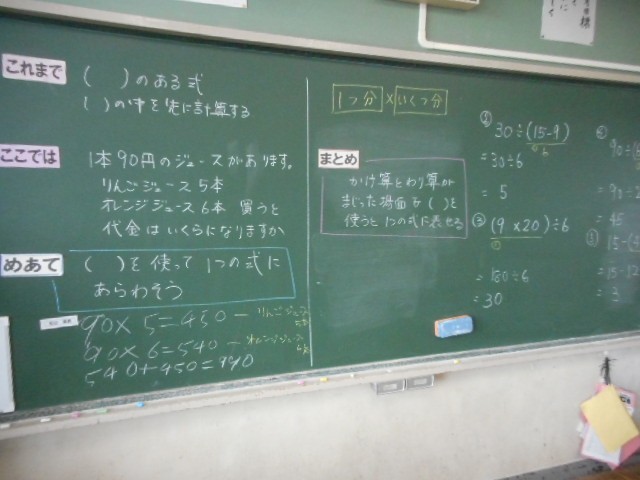 これまで
( )のある式
( )の中を先に計算する
ここでは
1本90円のジュースがあります。
りんごジュース5本
オレンジジュース6本 買うと
代金はいくらになりますか
めあて
( )を使って1つの式に
あらわそう
90×5=450 ー りんごジュース
90×6=540 ー オレンジジュース
540+450=990
1つ分×いくつ分
まとめ
かけ算とわり算が
まじった場面も( )を
使うと1つの式に表せる
30÷(15-9)
=30÷6
=5
② (9×20)÷6
=180÷6
=30
90÷
=90÷
=45
15-
=15-12
=3